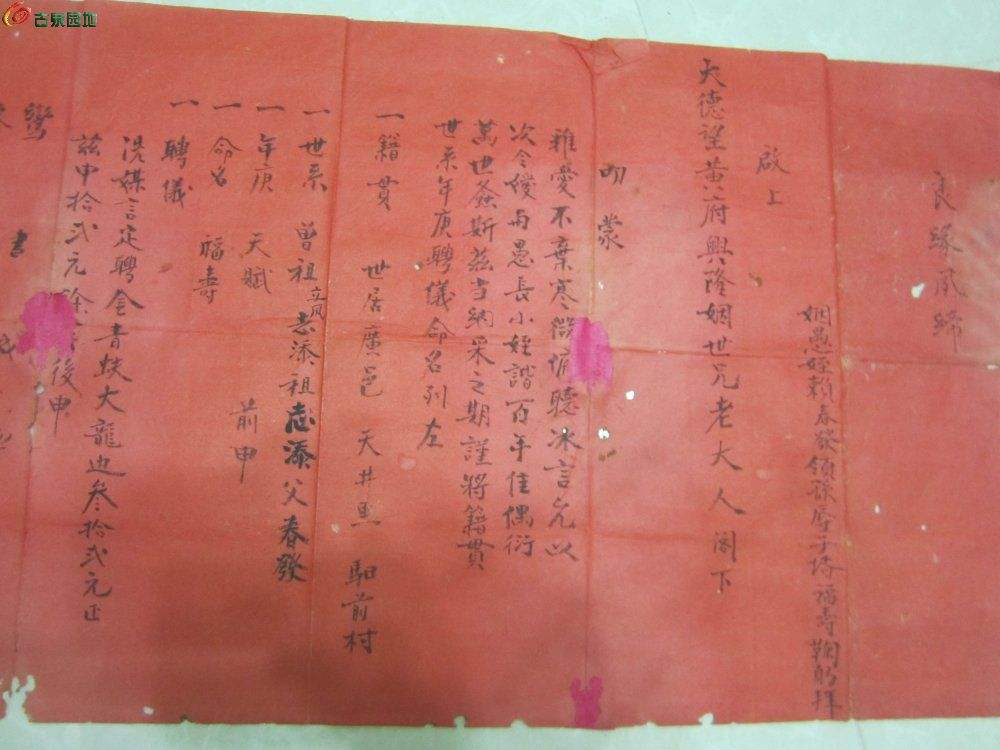 古泉园地
良緣夙締
姻愚姪賴春發領孫辱子壻福壽鞠躬拜
大德望黃府興隆姻世兄老大人閣下
啟上
叨蒙
雅愛不棄寒微俯聽冰言允以
次令嬡與愚長小姪諧百年佳偶衍
萬世螽斯茲當納采之期謹將籍貫
世系年庚聘儀命名列左
一籍貫 世居廣邑 天井 前村
一世系 曾祖立凤志添祖志添父春發
一年庚 天賦 前申
一命名 福壽
一聘儀
洗媒言定聘金青蚨大龍 叁拾弍元正
茲申拾弍元餘 後申
鸞書